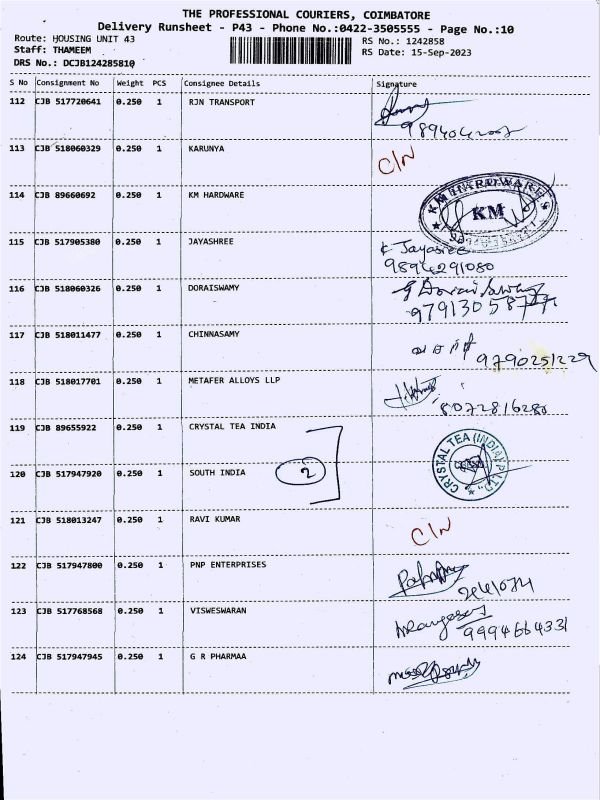 THE PROFESSIONAL COURIERS, COIMBATORE
Delivery Runsheet - P43 - Phone No.:0422-3505555 - Page No.:10
Route: HOUSING UNIT 43
RS No.: 1242858
Staff: THAMEEM
RS Date: 15-Sep-2023
DRS No.: DCJB124285810
S No Consignment No Weight PCS Consignee Details Signature
112 CJB 517720641 0.250 1 RJN TRANSPORT
113 CJB 518060329 0.250 1 KARUNYA C/N
114 CJB 89660692 0.250 1 KM HARDWARE KM HARDWARES KM
115 CJB 517905380 0.250 1 JAYASHREE K Jayasree
9894291080
116 CJB 518060326 0.250 1 DORAISWAMY
117 CJB 518011477 0.250 1 CHINNASAMY 9790251229
118 CJB 518017701 0.250 1 METAFER ALLOYS LLP
8072816280
119 CJB 89655922 0.250 1 CRYSTAL TEA INDIA CRYSTAL TEA (INDIA) P LTD
120 CJB 517947920 0.250 1 SOUTH INDIA 2
121 CJB 518013247 0.250 1 RAVI KUMAR C/N
122 CJB 517947800 0.250 1 PNP ENTERPRISES
123 CJB 517768568 0.250 1 VISWESWARAN
9994664331
124 CJB 517947945 0.250 1 G R PHARMAA